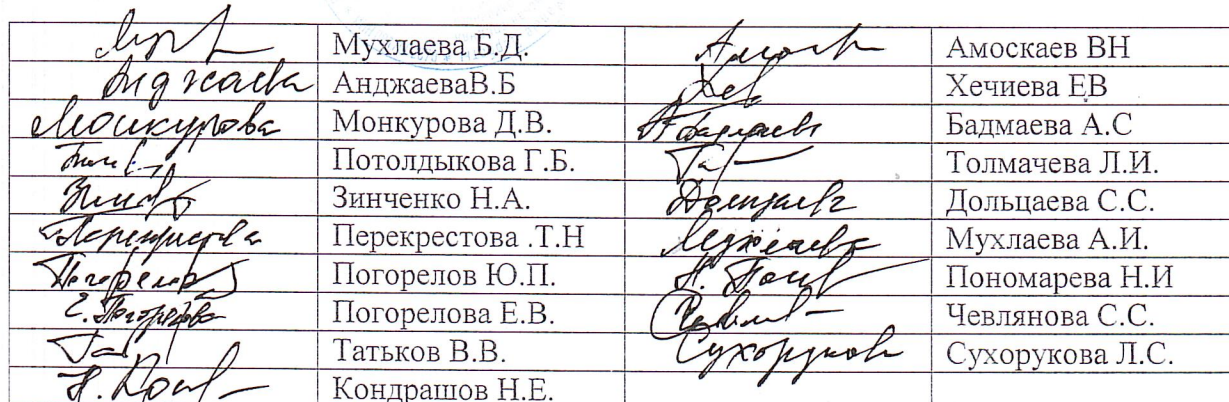 Мухлаева Б.Д. Амоскаев ВН
Анджаева АнджаеваВ.Б Хечиева ЕВ
Монкурова Монкурова Д.В. Бадмаева Бадмаева А.С
Потолдыкова Г.Б. Толмачева Л.И.
Зинченко Н.А. Дольцаева Дольцаева С.С.
Перекрестова Перекрестова .Т.Н Мухлаева Мухлаева А.И.
Погорелов Погорелов Ю.П. Н. Пономарева Н.И
Е. Погорелова Погорелова Е.В. Чевлянова С.С.
Татьков В.В. Сухорукова Сухорукова Л.С.
Н. Кондрашов Н.Е.